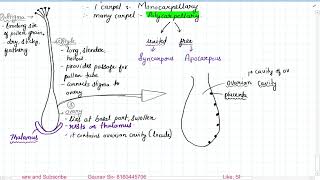 1 carpel : Monocarpellary
many carpel - Polycarpellary
Stigma
- landing site
of pollen grain,
dry, sticky,
feathery
Style
- long, slender,
- provides passage for
pollen tube
- connects stigma to
ovary
united
free
Syncarpous
Apocarpous
cavity of ov
ovarian
cavity
placenta
Ovary
- lies at basal part, swollen
- rests on thalamus
- it contains ovarian cavity (locule)
Thalamus
are and Subscribe
Gaurav Sir- 8160445706
Like, Sh